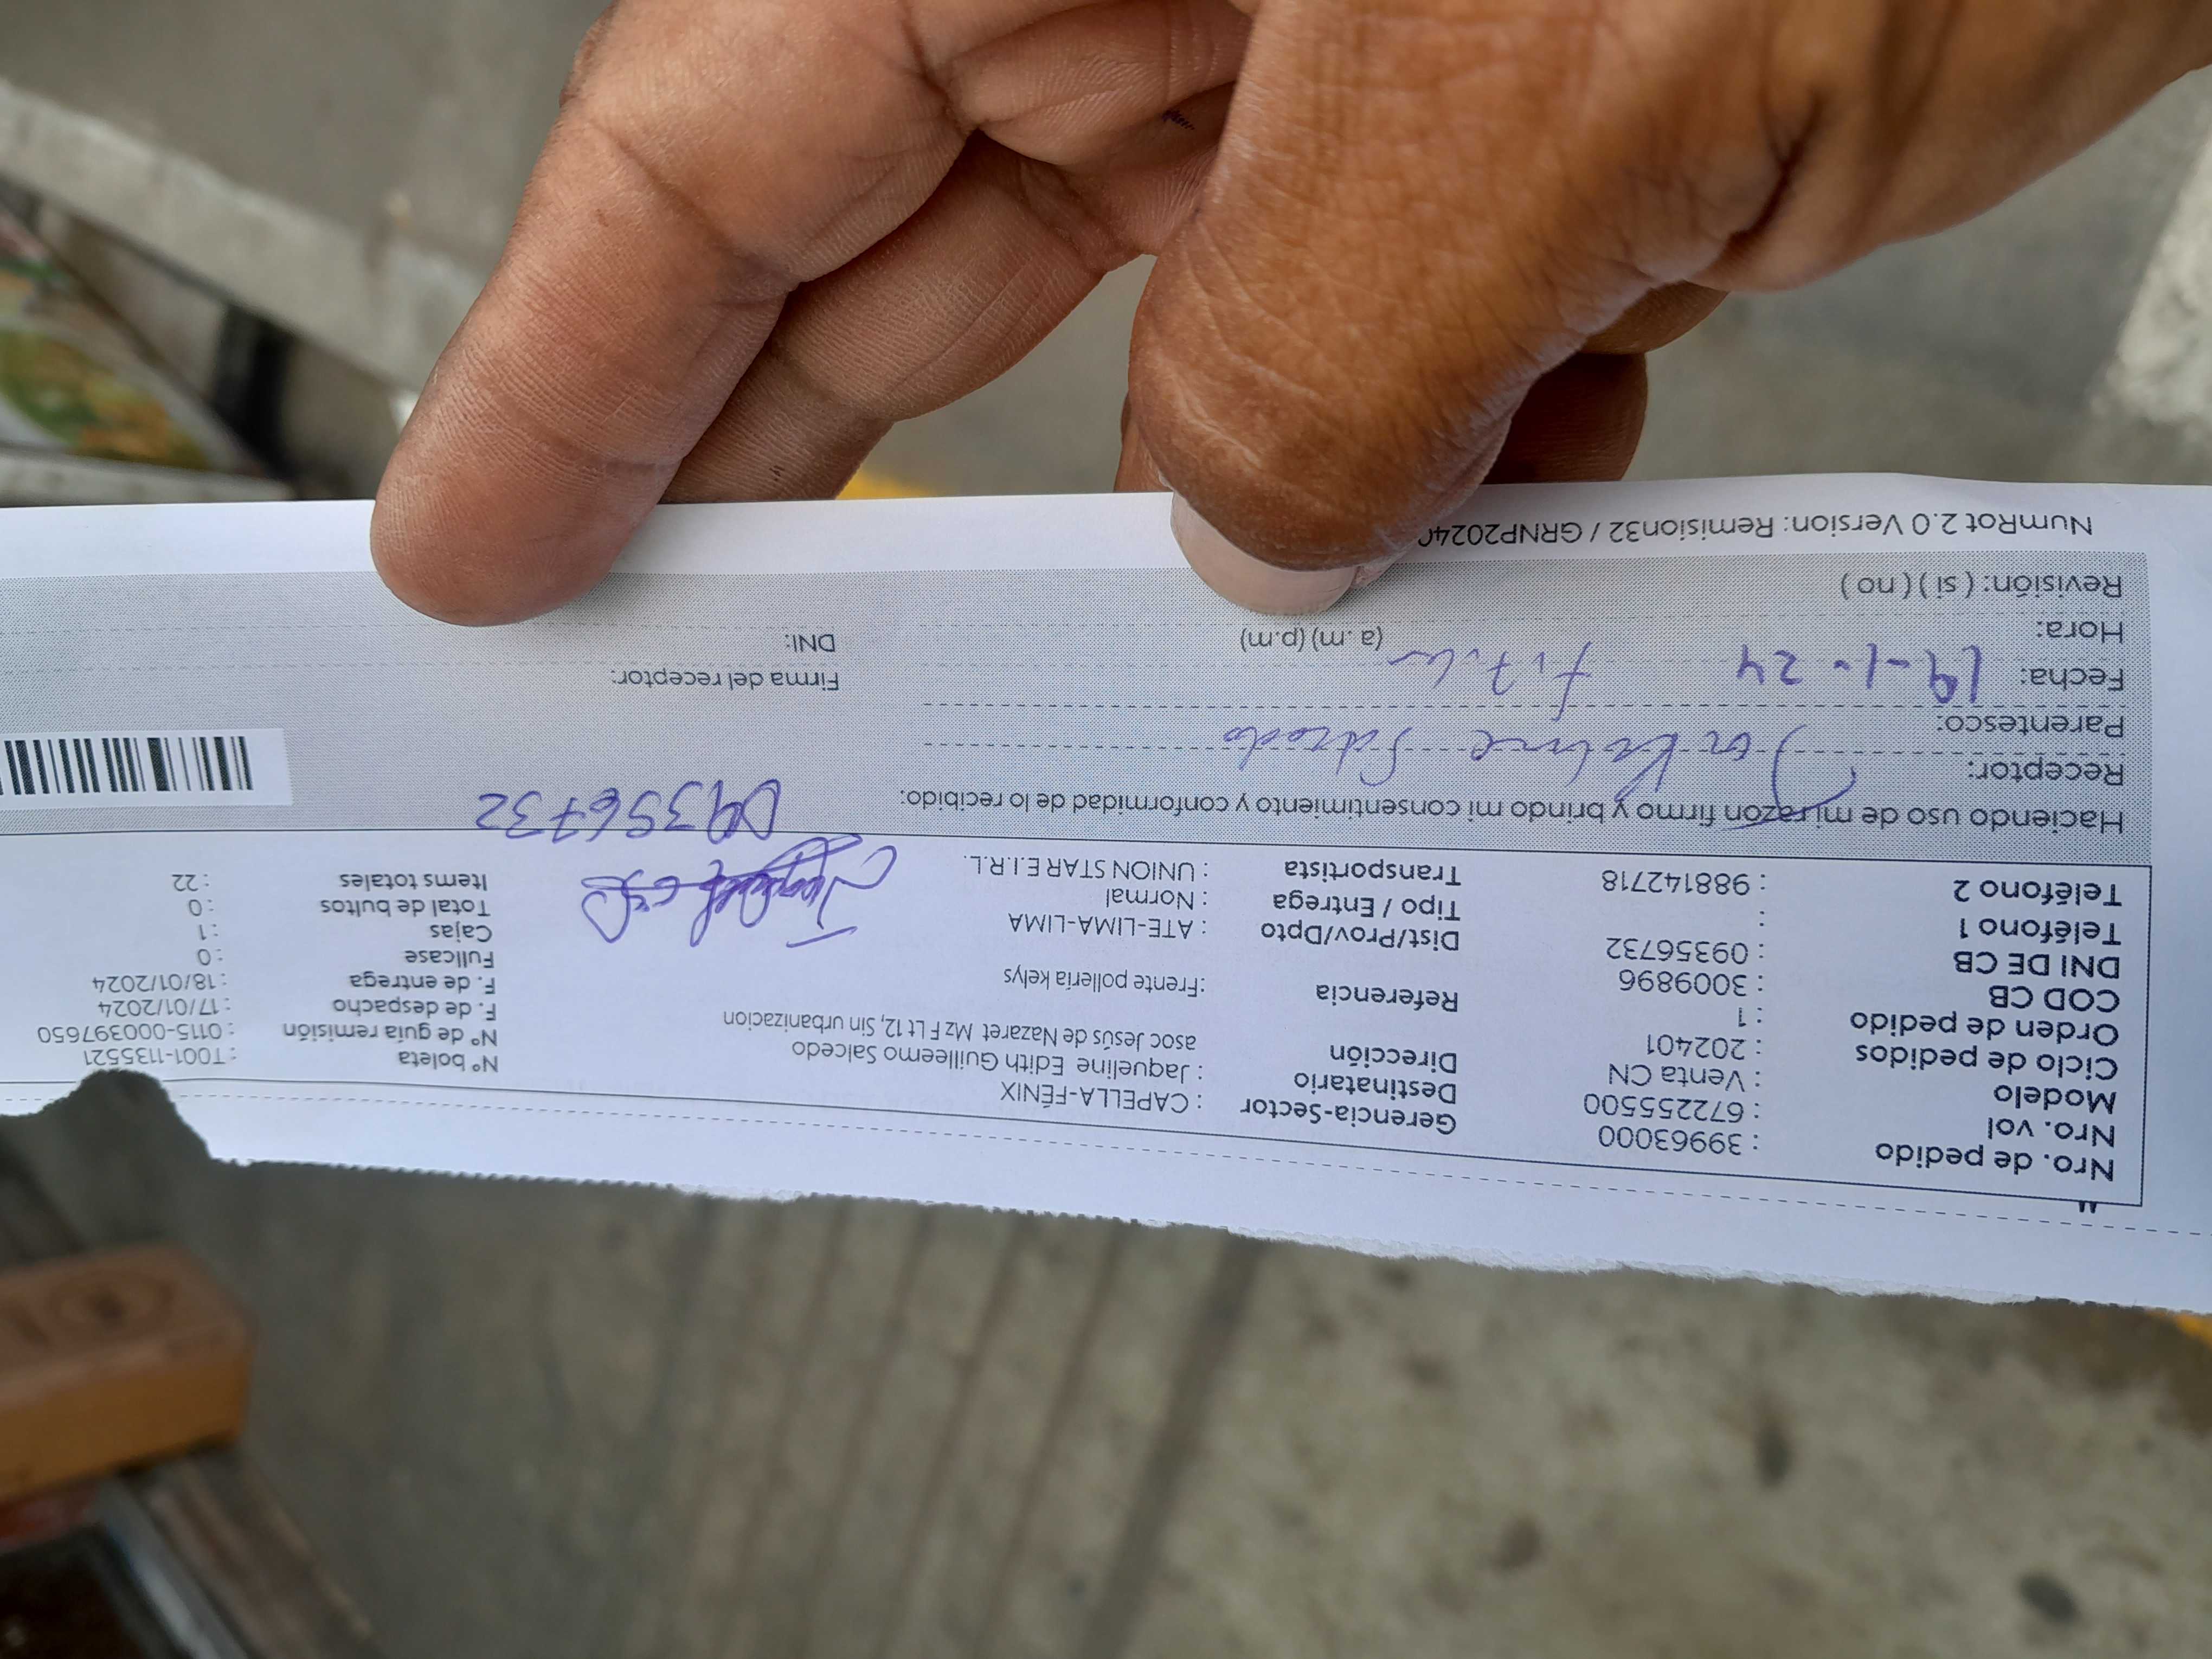 Nro. de pedido : 39963000
Nro. vol : 672255500
Modelo : Venta CN
Ciclo de pedidos : 202401
Orden de pedido : 1
COD CB : 3009896
DNI DE CB : 09356732
Teléfono 1 :
Teléfono 2 : 988142718
Gerencia-Sector : CAPELLA-FÉNIX
Destinatario : Jaqueline Edith Guilleermo Salcedo
Dirección asoc Jesús de Nazaret Mz F Lt 12, Sin urbanizacion
Referencia :Frente pollería kelys
Dist/Prov/Dpto : ATE-LIMA-LIMA
Tipo / Entrega : Normal
Transportista : UNION STAR E.I.R.L.
N° boleta : T001-1135521
N° de guía remisión : 0115-000397650
F. de despacho : 17/01/2024
F. de entrega : 18/01/2024
Fullcase : 0
Cajas : 1
Total de bultos : 0
Items totales : 22
Haciendo uso de mi razón firmo y brindo mi consentimiento y conformidad de lo recibido:
09356732
Receptor:
Parentesco:
Fecha: 19-1-24
Hora: (a.m) (p.m)
Revisión: ( si ) ( no )
Firma del receptor:
DNI:
NumRot 2.0 Version: Remision32 / GRNP2024